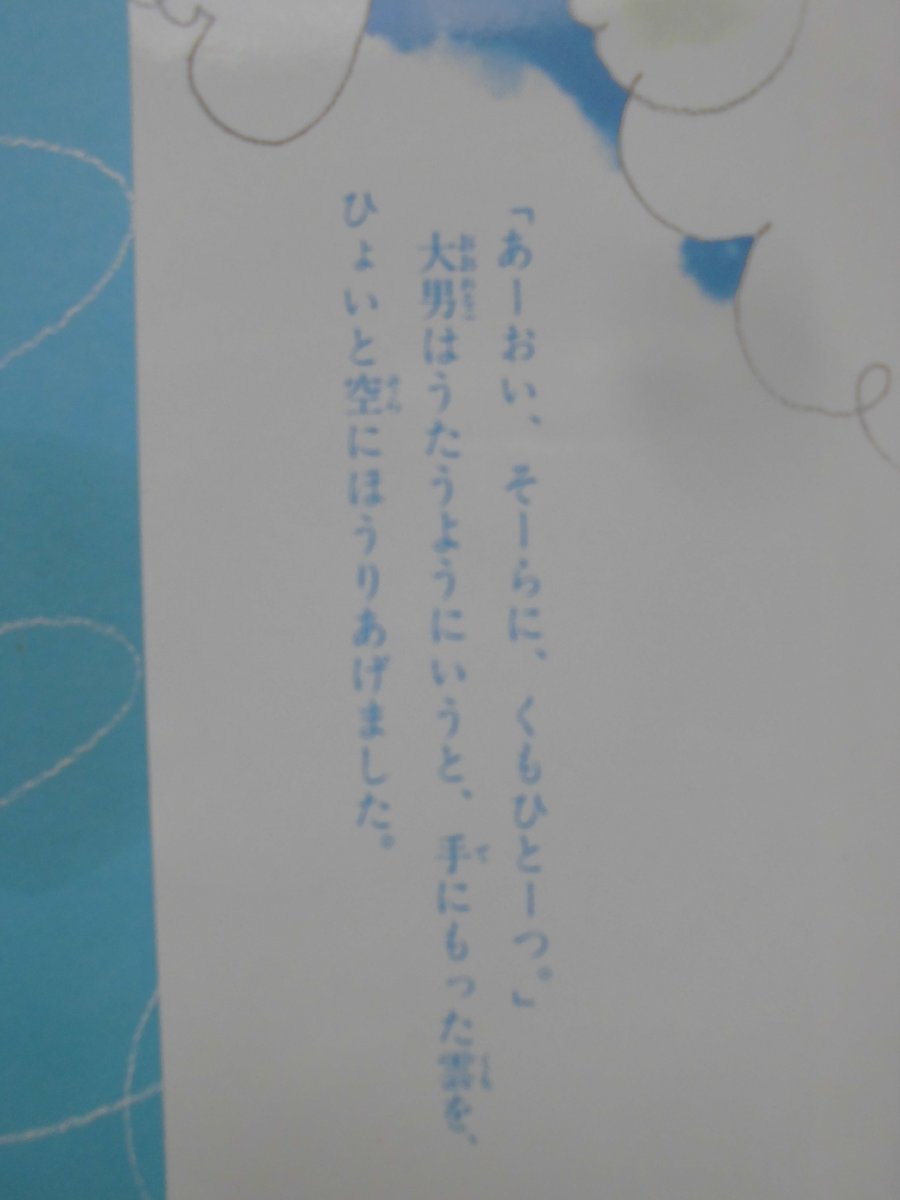 「あーおい、そーらに、くもひとーつ。」
大男はうたうようにいうと、手にもった雲を、
ひょいと空にほうりあげました。